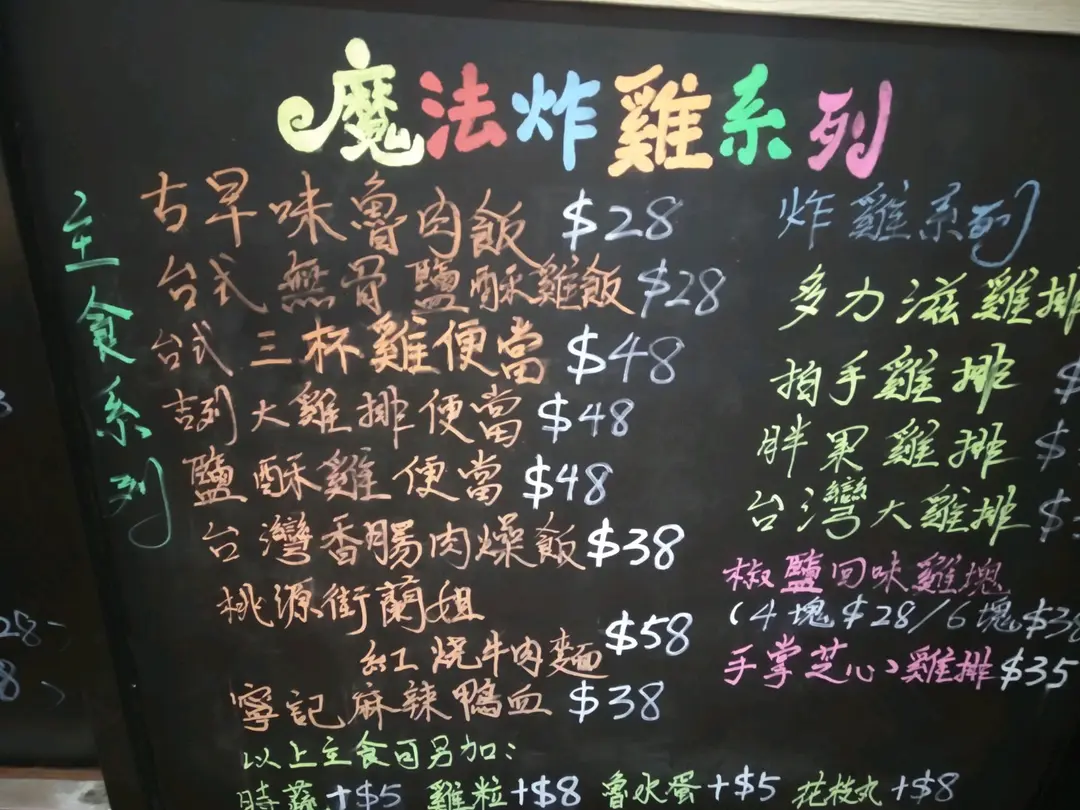 魔法炸雞系列
主食系列
古早味魯肉飯 $28
台式無骨鹽酥雞飯 $28
台式三杯雞便當 $48
吉列大雞排便當 $48
鹽酥雞便當 $48
台灣香腸肉燥飯 $38
桃源街蘭姐
紅燒牛肉麵 $58
寧記麻辣鴨血 $38
以上主食可另加:
時蔬+$5 雞粒+$8 魯水蛋+$5 花枝丸+$8
炸雞系列
多力滋雞排
拍手雞排 $
胖果雞排 $
台灣大雞排 $
椒鹽回味雞塊
(4塊$28/6塊$38
手掌芝心雞排 $35
28
8